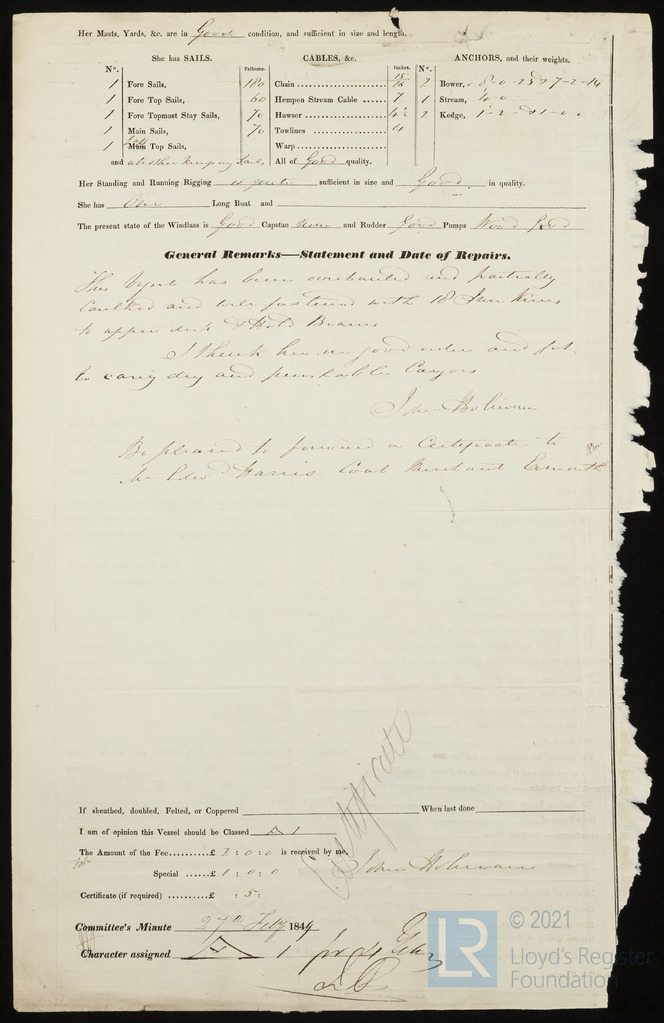 Her Masts, Yards, &c. are in Good condition, and sufficient in size and length.
She has SAILS.
CABLES, &c.
ANCHORS, and their weights.
N°.
Fathoms.
Inches.
N°.
1 Fore Sails, 180 Chain 15/16 2 Bower, 8-0-23 & 7-2-14
1 Fore Top Sails, 60 Hempen Stream Cable 7 1 Stream, 4-0
1 Fore Topmast Stay Sails, 70 Hawser 4½ 2 Kedge, 1-2- & 1-0
1 Main Sails, 70 Towlines 4
1 Main Top Sails, Warp
and all other necessary Sails, All of Good quality.
Her Standing and Running Rigging sufficient in size and Good in quality.
She has One Long Boat and
The present state of the Windlass is Good Capstan none and Rudder Good Pumps Wood Good
General Remarks—Statement and Date of Repairs.
This Vessel has been overhauled and partially
Caulked and fastened with 18 Iron Knees
to upper deck & Hold Beams
I think her in good order and fit
to carry dry and perishable Cargoes
John Holman
Be pleased to forward a Certificate to
Mr Edwd Harris Coal Merchant Exmouth
If sheathed, doubled, Felted, or Coppered When last done
I am of opinion this Vessel should be Classed A 1
The Amount of the Fee £ 2:0:0 is received by me,
Special £ 1:0:0 John Holman
Certificate (if required) £ : 5:
Certificate
Committee's Minute 27th Feby 1849
Character assigned A 1
© 2021
LR
Lloyd's Register
Foundation